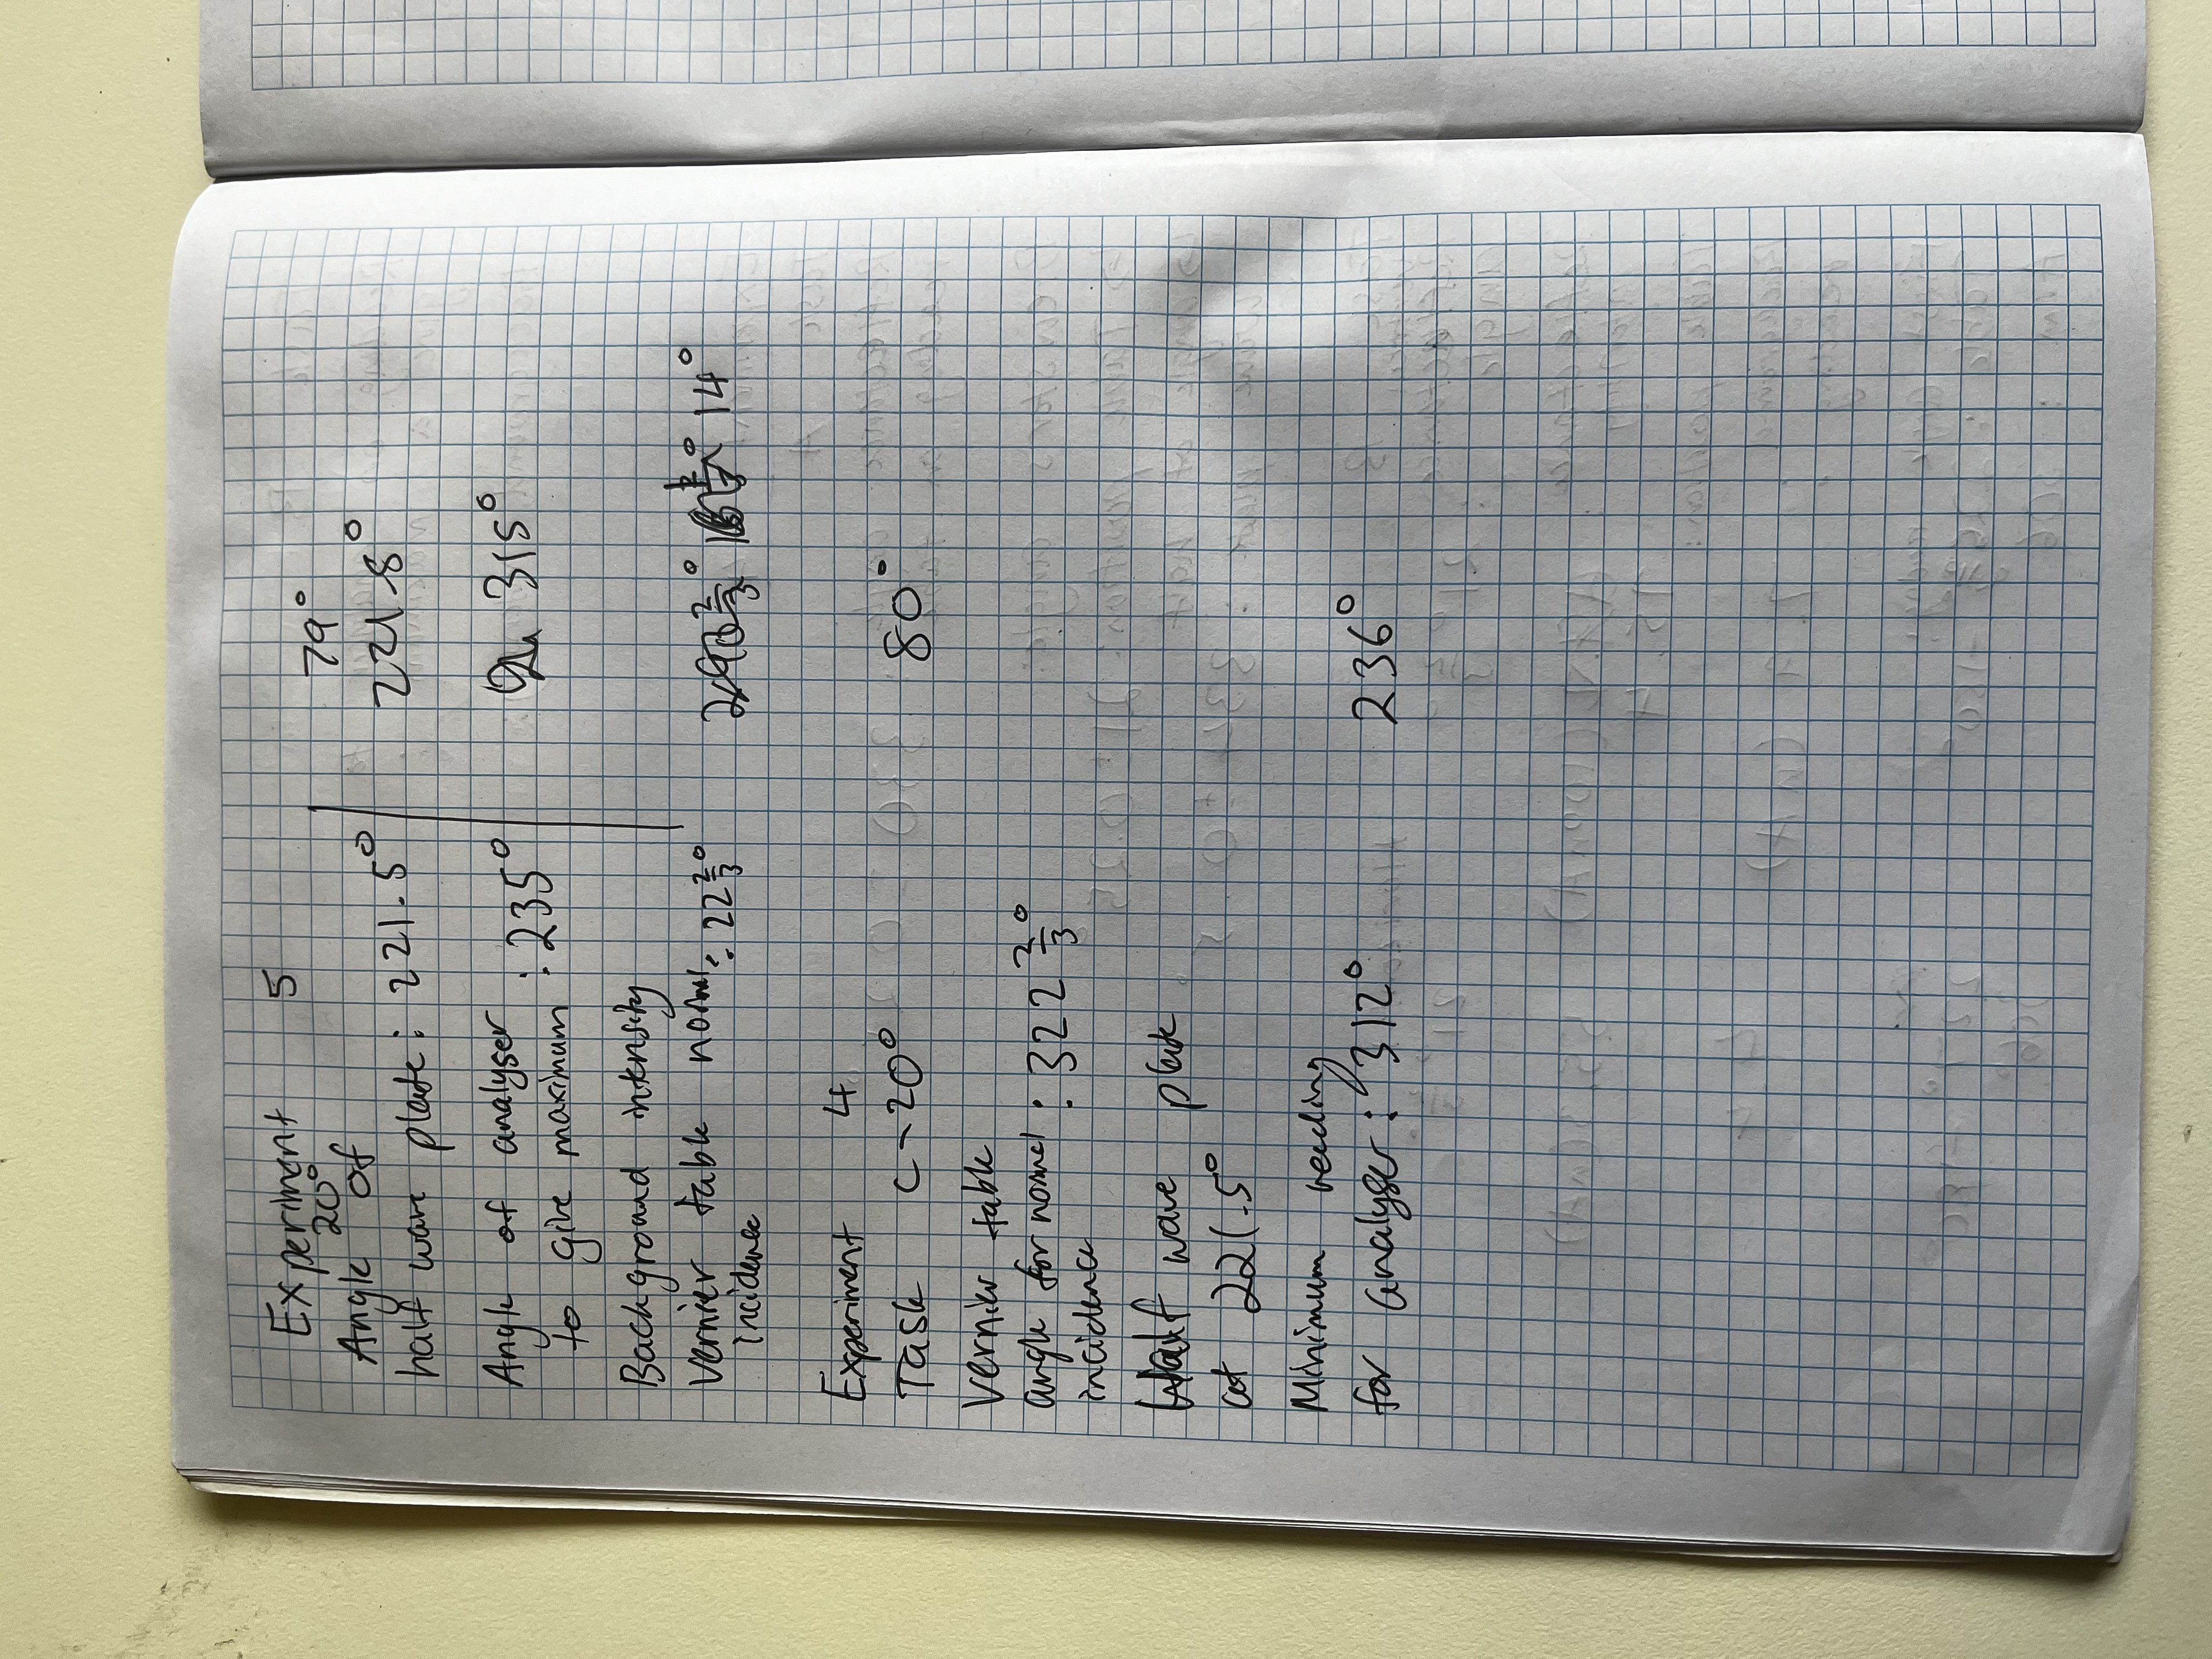 Experiment 5
20° 79°
Angle of
half wave plate: 221.5° 221.8°
Angle of analyser
to give maximum : 235° 315°
Background intensity
Vernier table normal : 22 2/3° 14°
incidence
Experiment 4
Task C - 20° 80°
Vernier table
angle for normal : 322 2/3°
incidence
Half wave plate
at 221.5°
Minimum reading
for analyser : 312° 236°